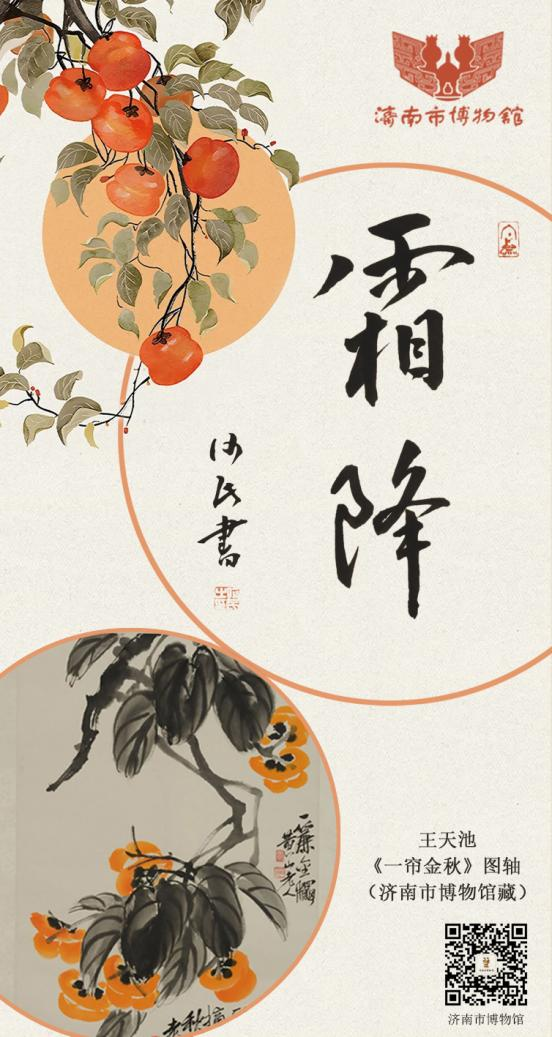 濟南市博物館
霜降
民書
一簾金穐
黄山老人
王天池
《一帘金秋》图轴
（济南市博物馆藏）
济南市博物馆